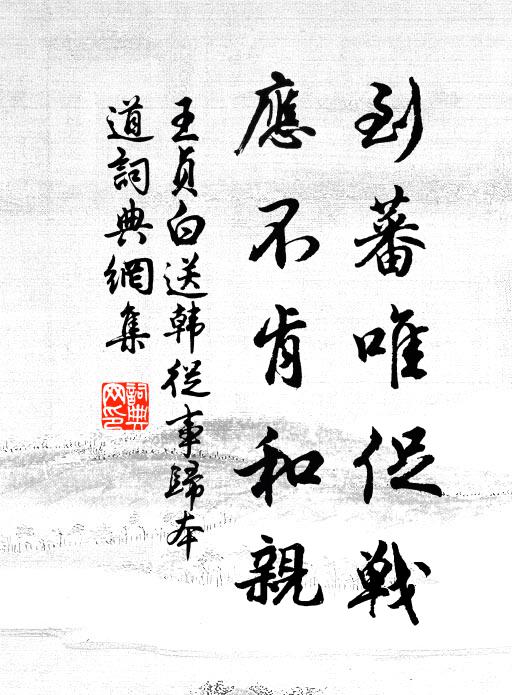 到蕃唯促戰
應不肯和親
王貞白送韓從事歸本
道詞典網集
詞典網印